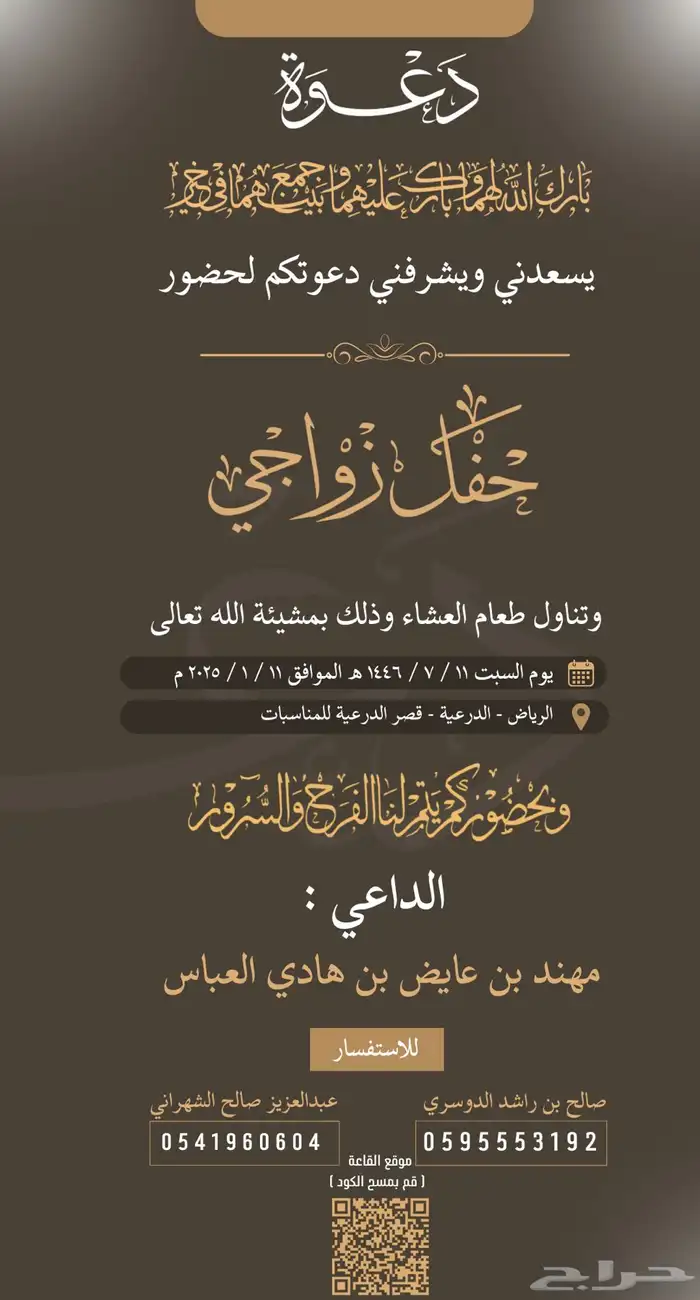 دعوة
بارك الله لهما وبارك عليهما وجمع بينهما في خير
يسعدني ويشرفني دعوتكم لحضور
حفل زواجي
وتناول طعام العشاء وذلك بمشيئة الله تعالى
يوم السبت ١١ / ٧ / ١٤٤٦ هـ الموافق ١١ / ١ / ٢٠٢٥ م
الرياض - الدرعية - قصر الدرعية للمناسبات
وبحضوركم يتم لنا الفرح والسرور
الداعي :
مهند بن عايض بن هادي العباس
للاستفسار
صالح بن راشد الدوسري
0595553192
عبدالعزيز صالح الشهراني
0541960604
موقع القاعة
( قم بمسح الكود )
حراج